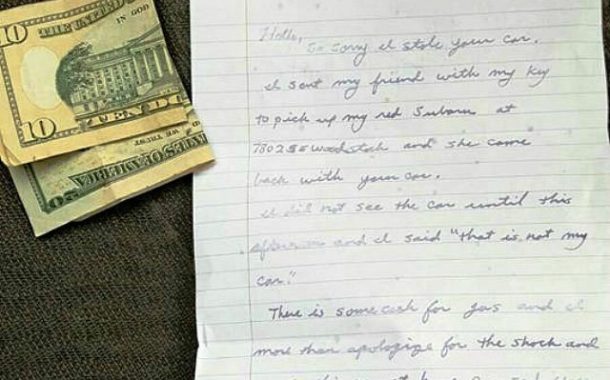 10
THE UNITED
IN GOD
10 TEN DO
ES OF AMERICA
Hello,
So sorry I stole your car.
I sent my friend with my key
to pick up my red Subaru at
7802 SE Woodstock and she came
back with your car.
I did not see the car until this
afternoon and I said "that is not my
car."
There is some cash for gas and I
more than apologize for the shock and